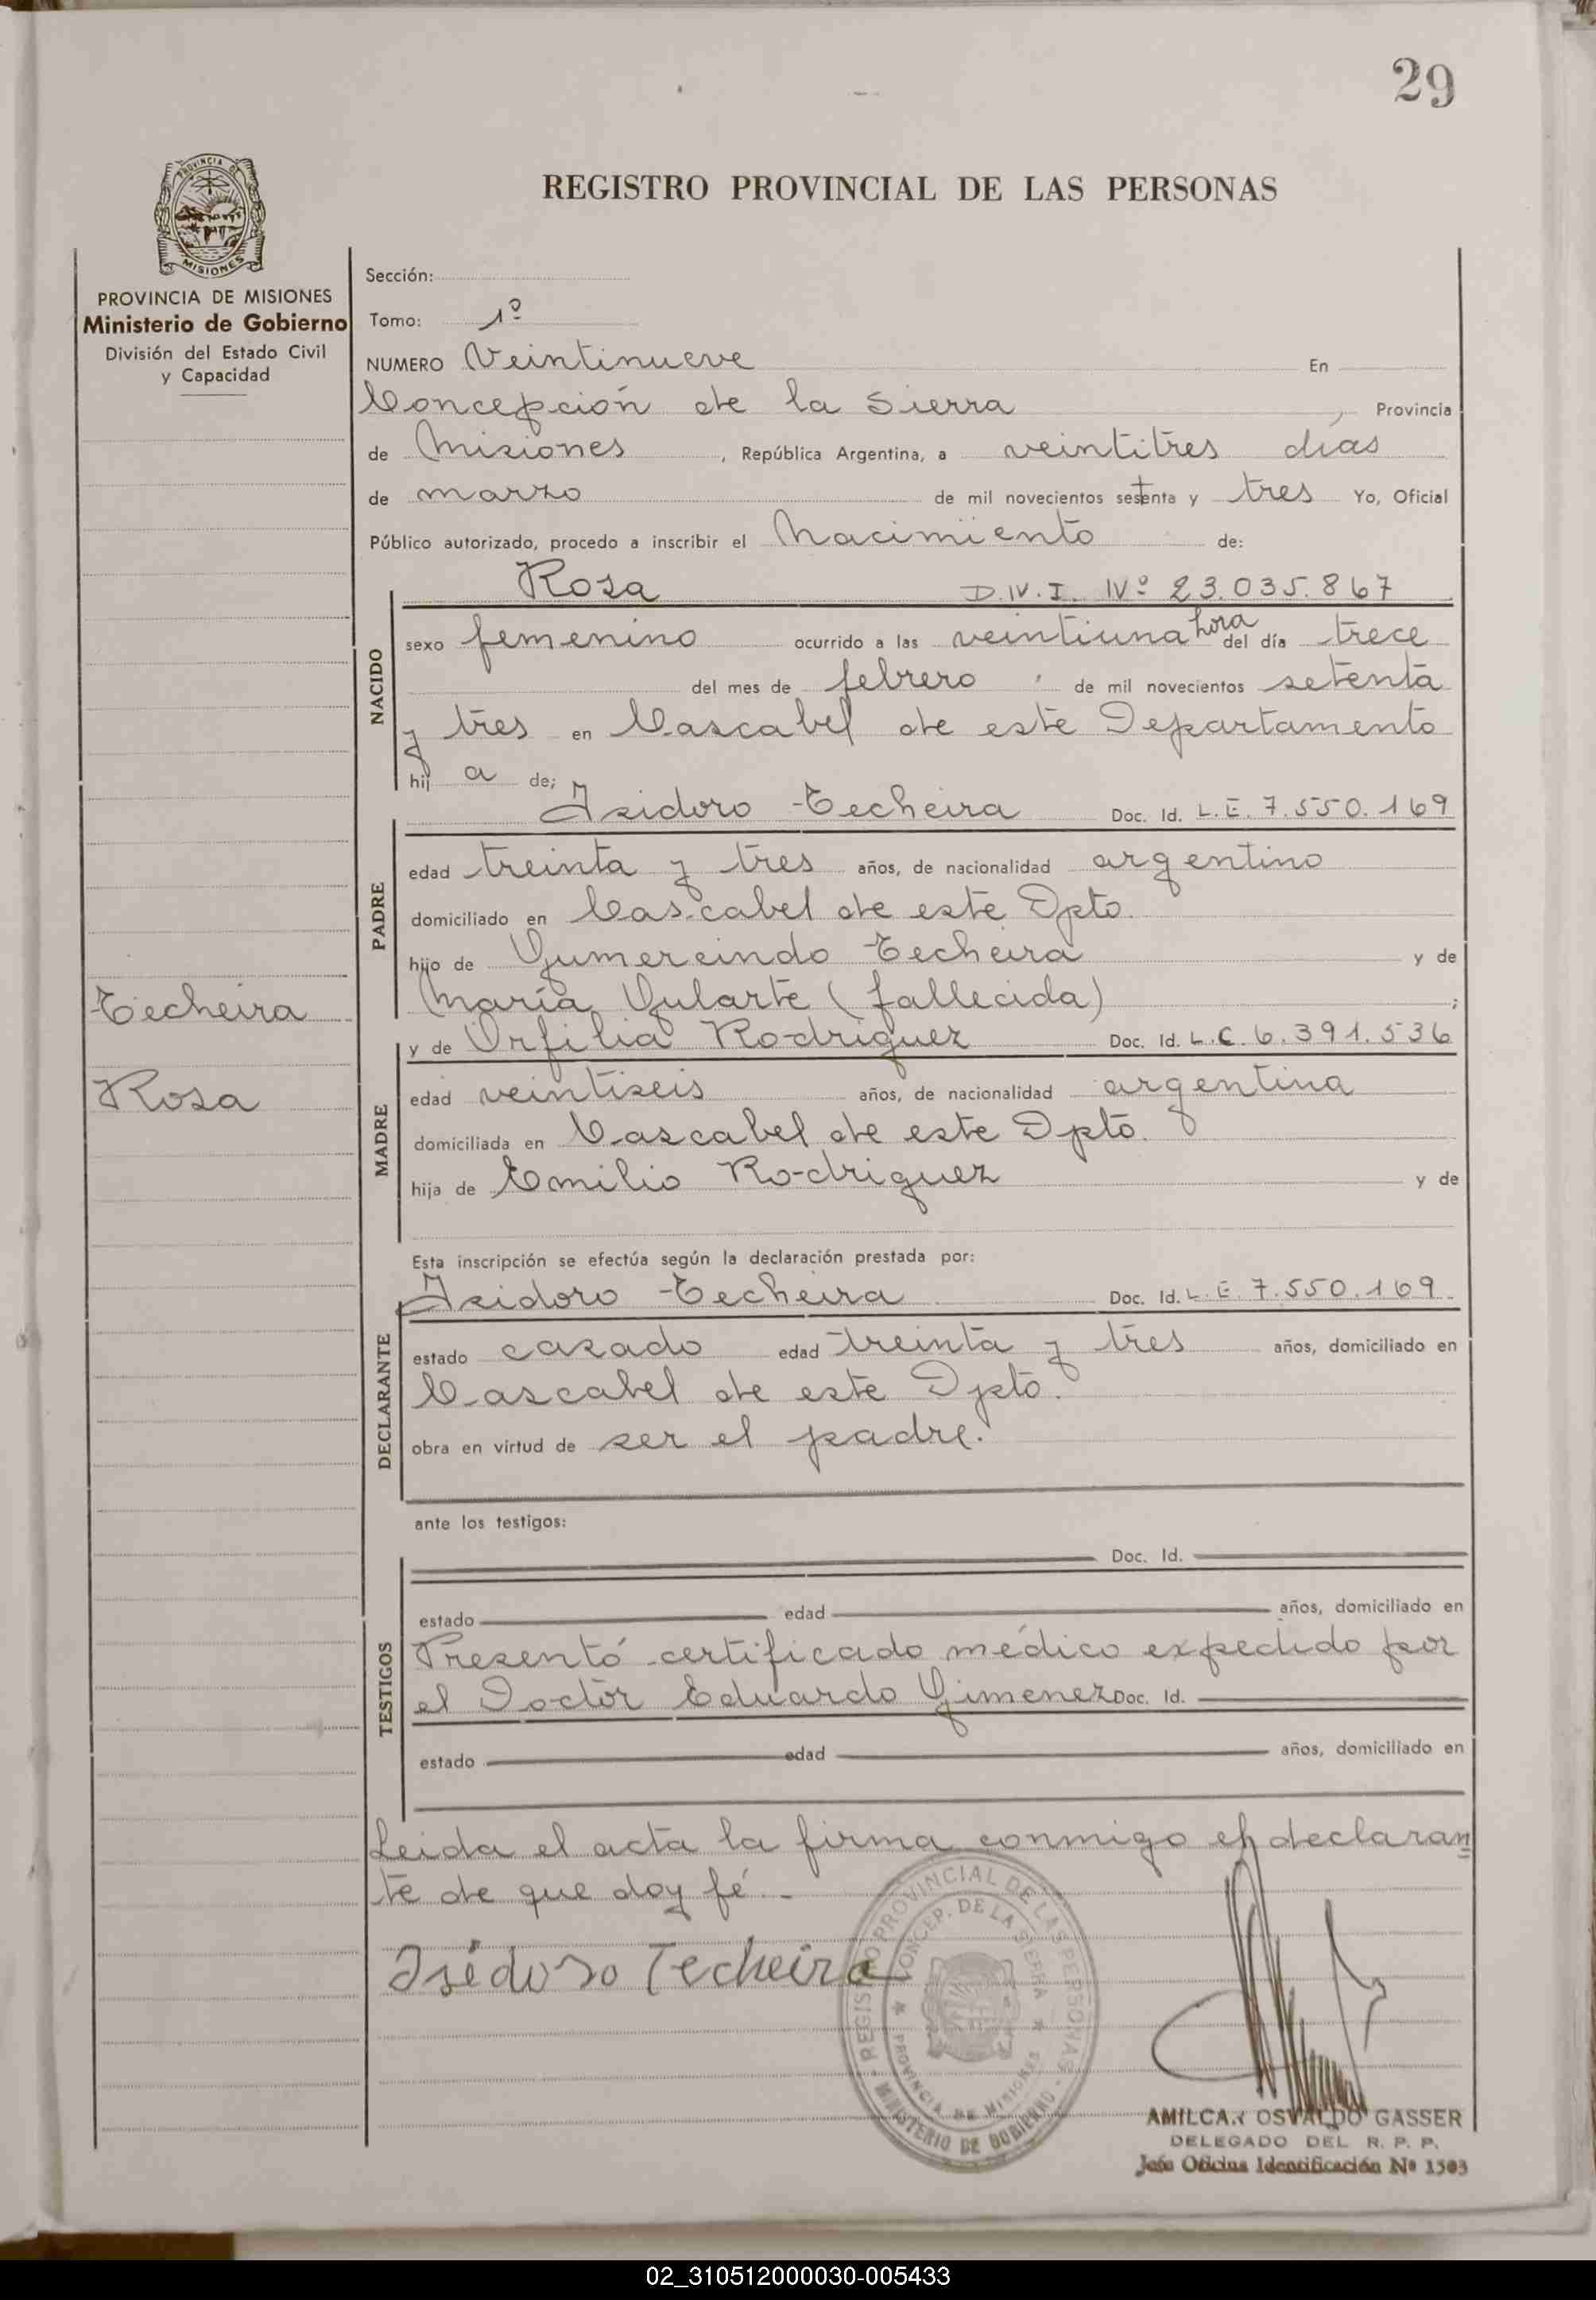 29
PROVINCIA DE
MISIONES
REGISTRO PROVINCIAL DE LAS PERSONAS
PROVINCIA DE MISIONES
Ministerio de Gobierno
División del Estado Civil
y Capacidad
Sección:
Tomo: 1º
NUMERO Veintinueve En
Concepción de la Sierra, Provincia
de Misiones, República Argentina, a veintitres días
de marzo de mil novecientos setenta y tres Yo, Oficial
Público autorizado, procedo a inscribir el Nacimiento de:
Rosa D.N.I. Nº 23.035.867
NACIDO
sexo femenino ocurrido a las veintiuna hora del día trece
del mes de febrero de mil novecientos setenta
y tres en Cascabel de este Departamento
hij a de;
Isidoro Techeira Doc. Id. L.E. 7.550.169
PADRE
edad treinta y tres años, de nacionalidad argentino
domiciliado en Cascabel de este Dpto.
hijo de Gumercindo Techeira y de
María Gularte (fallecida) ;
Techeira
Rosa
y de Orfilia Rodriguez Doc. Id. L.C. 6.391.536
MADRE
edad veintiseis años, de nacionalidad argentina
domiciliada en Cascabel de este Dpto.
hija de Emilio Rodriguez y de
Esta inscripción se efectúa según la declaración prestada por:
Isidoro Techeira Doc. Id. L.E. 7.550.169.
DECLARANTE
estado casado edad treinta y tres años, domiciliado en
Cascabel de este Dpto.
obra en virtud de ser el padre.
ante los testigos:
Doc. Id.
TESTIGOS
estado edad años, domiciliado en
Presentó certificado médico expedido por
el Doctor Eduardo Gimenez Doc. Id.
estado edad años, domiciliado en
Leida el acta la firma conmigo el declaran
te de que doy fé.-
Isidoro Techeira
REGISTRO PROVINCIAL DE LAS PERSONAS
CONCEP. DE LA SIERRA
PROVINCIA DE MISIONES
MINISTERIO DE GOBIERNO
AMILCAR OSVALDO GASSER
DELEGADO DEL R. P. P.
Jefe Oficina Identificación Nº 1503
02_310512000030-005433